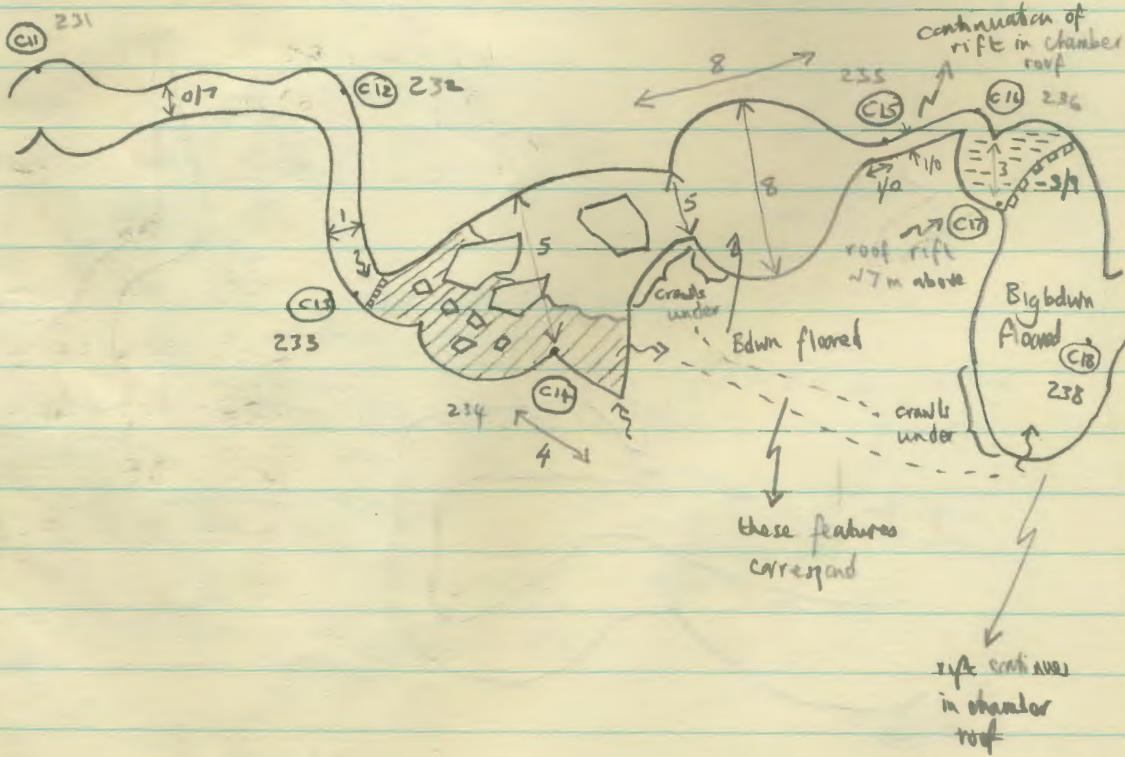 C11 231
0/7
C12 232
8
continuation of
rift in chamber
roof
235
C15
C16 236
1/0
1/0
3
8
5
5
1
C13
233
C17
roof rift
~7m above
crawls
under
Bdwn floored
Big bdwn
floored
C18
238
234
C14
4
crawls
under
these features
correspond
rift continues
in chamber
roof